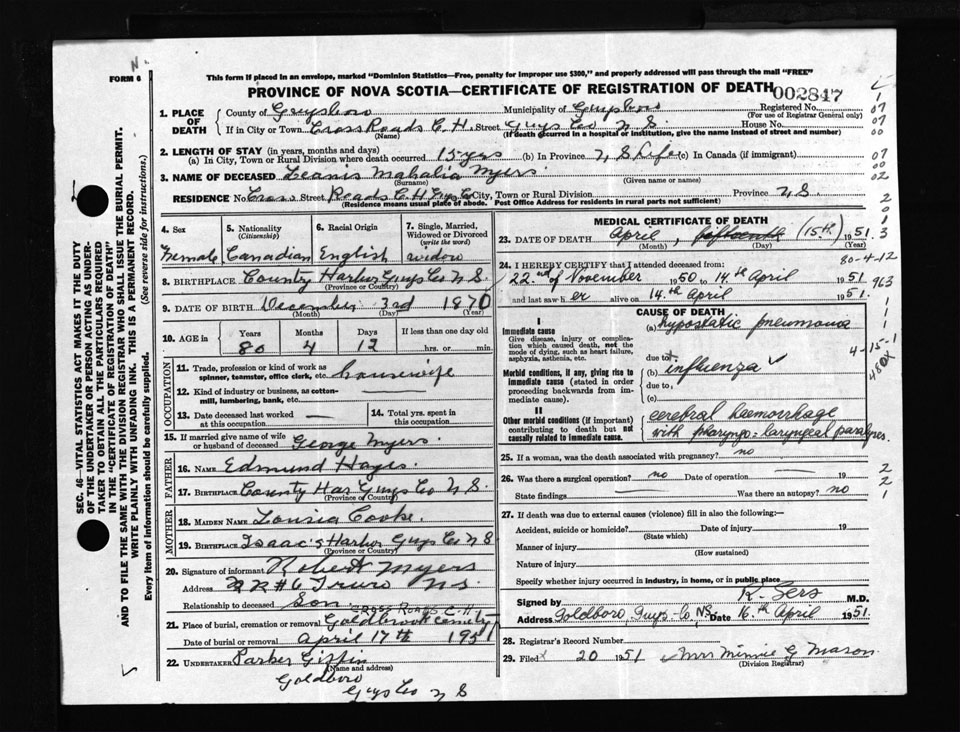 N.
FORM 6
This form if placed in an envelope, marked "Dominion Statistics—Free, penalty for improper use $300," and properly addressed will pass through the mail "FREE"
PROVINCE OF NOVA SCOTIA—CERTIFICATE OF REGISTRATION OF DEATH
002847
SEC. 46—VITAL STATISTICS ACT MAKES IT THE DUTY
OF THE UNDERTAKER OR PERSON ACTING AS UNDER-
TAKER TO OBTAIN ALL THE PARTICULARS REQUIRED
IN THE "CERTIFICATE OF REGISTRATION OF DEATH"
AND TO FILE THE SAME WITH THE DIVISION REGISTRAR WHO SHALL ISSUE THE BURIAL PERMIT.
WRITE PLAINLY WITH UNFADING INK. THIS IS A PERMANENT RECORD.
Every item of information should be carefully supplied. (See reverse side for instructions.)
1. PLACE OF DEATH
County of Guysboro Municipality of Guysboro Registered No.
(For use of Registrar General only)
If in City or Town Cross Roads C. H. Street Guys Co N S. House No.
(Name) (If death occurred in a hospital or institution, give the name instead of street and number)
2. LENGTH OF STAY (in years, months and days)
(a) In City, Town or Rural Division where death occurred 15 yrs (b) In Province N S Life (c) In Canada (if immigrant)
3. NAME OF DECEASED Leanis Mahalia Myers
(Surname) (Given name or names)
RESIDENCE No. Cross Street Roads C. H Guys Co City, Town or Rural Division Province N S.
(Residence means usual place of abode. Post Office Address for residents in rural parts not sufficient)
4. Sex
Female
5. Nationality
(Citizenship)
Canadian
6. Racial Origin
English
7. Single, Married,
Widowed or Divorced
(write the word)
widow
8. BIRTHPLACE County Harbor Guys Co N S.
(Province or Country)
9. DATE OF BIRTH December 3rd 1870
(Month) (Day) (Year)
10. AGE in Years Months Days If less than one day old
80 4 12 hrs. or min.
OCCUPATION
11. Trade, profession or kind of work as
spinner, teamster, office clerk, etc. housewife
12. Kind of industry or business, as cotton-
mill, lumbering, bank, etc. —
13. Date deceased last worked
at this occupation —
14. Total yrs. spent in
this occupation —
15. If married give name of wife
or husband of deceased George Myers.
FATHER
16. NAME Edmund Hayes.
17. BIRTHPLACE County Har Guys Co N S.
(Province or Country)
MOTHER
18. MAIDEN NAME Louisa Cooke.
19. BIRTHPLACE Isaac's Harbor Guys Co N S
(Province or Country)
20. Signature of informant Robert Myers
Address R R #6 Truro NS
Relationship to deceased Son
Cross Roads C. H
21. Place of burial, cremation or removal Goldbrook Cemetery
Date of burial or removal April 17th 1951
22. UNDERTAKER Parker Giffin
(Name and address)
Goldboro
Guys Co N S
MEDICAL CERTIFICATE OF DEATH
23. DATE OF DEATH April, fifteenth (15th.) 1951
(Month) (Day) (Year)
80-4-12
24. I HEREBY CERTIFY that I attended deceased from:
22. nd of November 1950 to 14.th April 1951
and last saw her alive on 14.th April 1951.
963
CAUSE OF DEATH
I
Immediate cause
Give disease, injury or complica-
tion which caused death, not the
mode of dying, such as heart failure,
asphyxia, asthenia, etc.
(a) hypostatic pneumonia
due to
4-15-1
480x
Morbid conditions, if any, giving rise to
immediate cause (stated in order
proceeding backwards from im-
mediate cause).
(b) influenza ✓
due to,
(c)
II
Other morbid conditions (if important)
contributing to death but not
causally related to immediate cause.
cerebral haemorrhage
with pharyngo=laryngeal paralyses.
25. If a woman, was the death associated with pregnancy? no
26. Was there a surgical operation? no Date of operation — 19
State findings — Was there an autopsy? no
27. If death was due to external causes (violence) fill in also the following:—
Accident, suicide or homicide? Date of injury 19
(State which)
Manner of injury
(How sustained)
Nature of injury
Specify whether injury occurred in industry, in home, or in public place
Signed by K. Sers M.D.
Address Goldboro, Guys. Co. NS. Date 16.th April 1951.
28. Registrar's Record Number
29. Filed 20 1951 Mrs Minnie G Mason.
(Division Registrar)
1
07
07
00
07
00
02